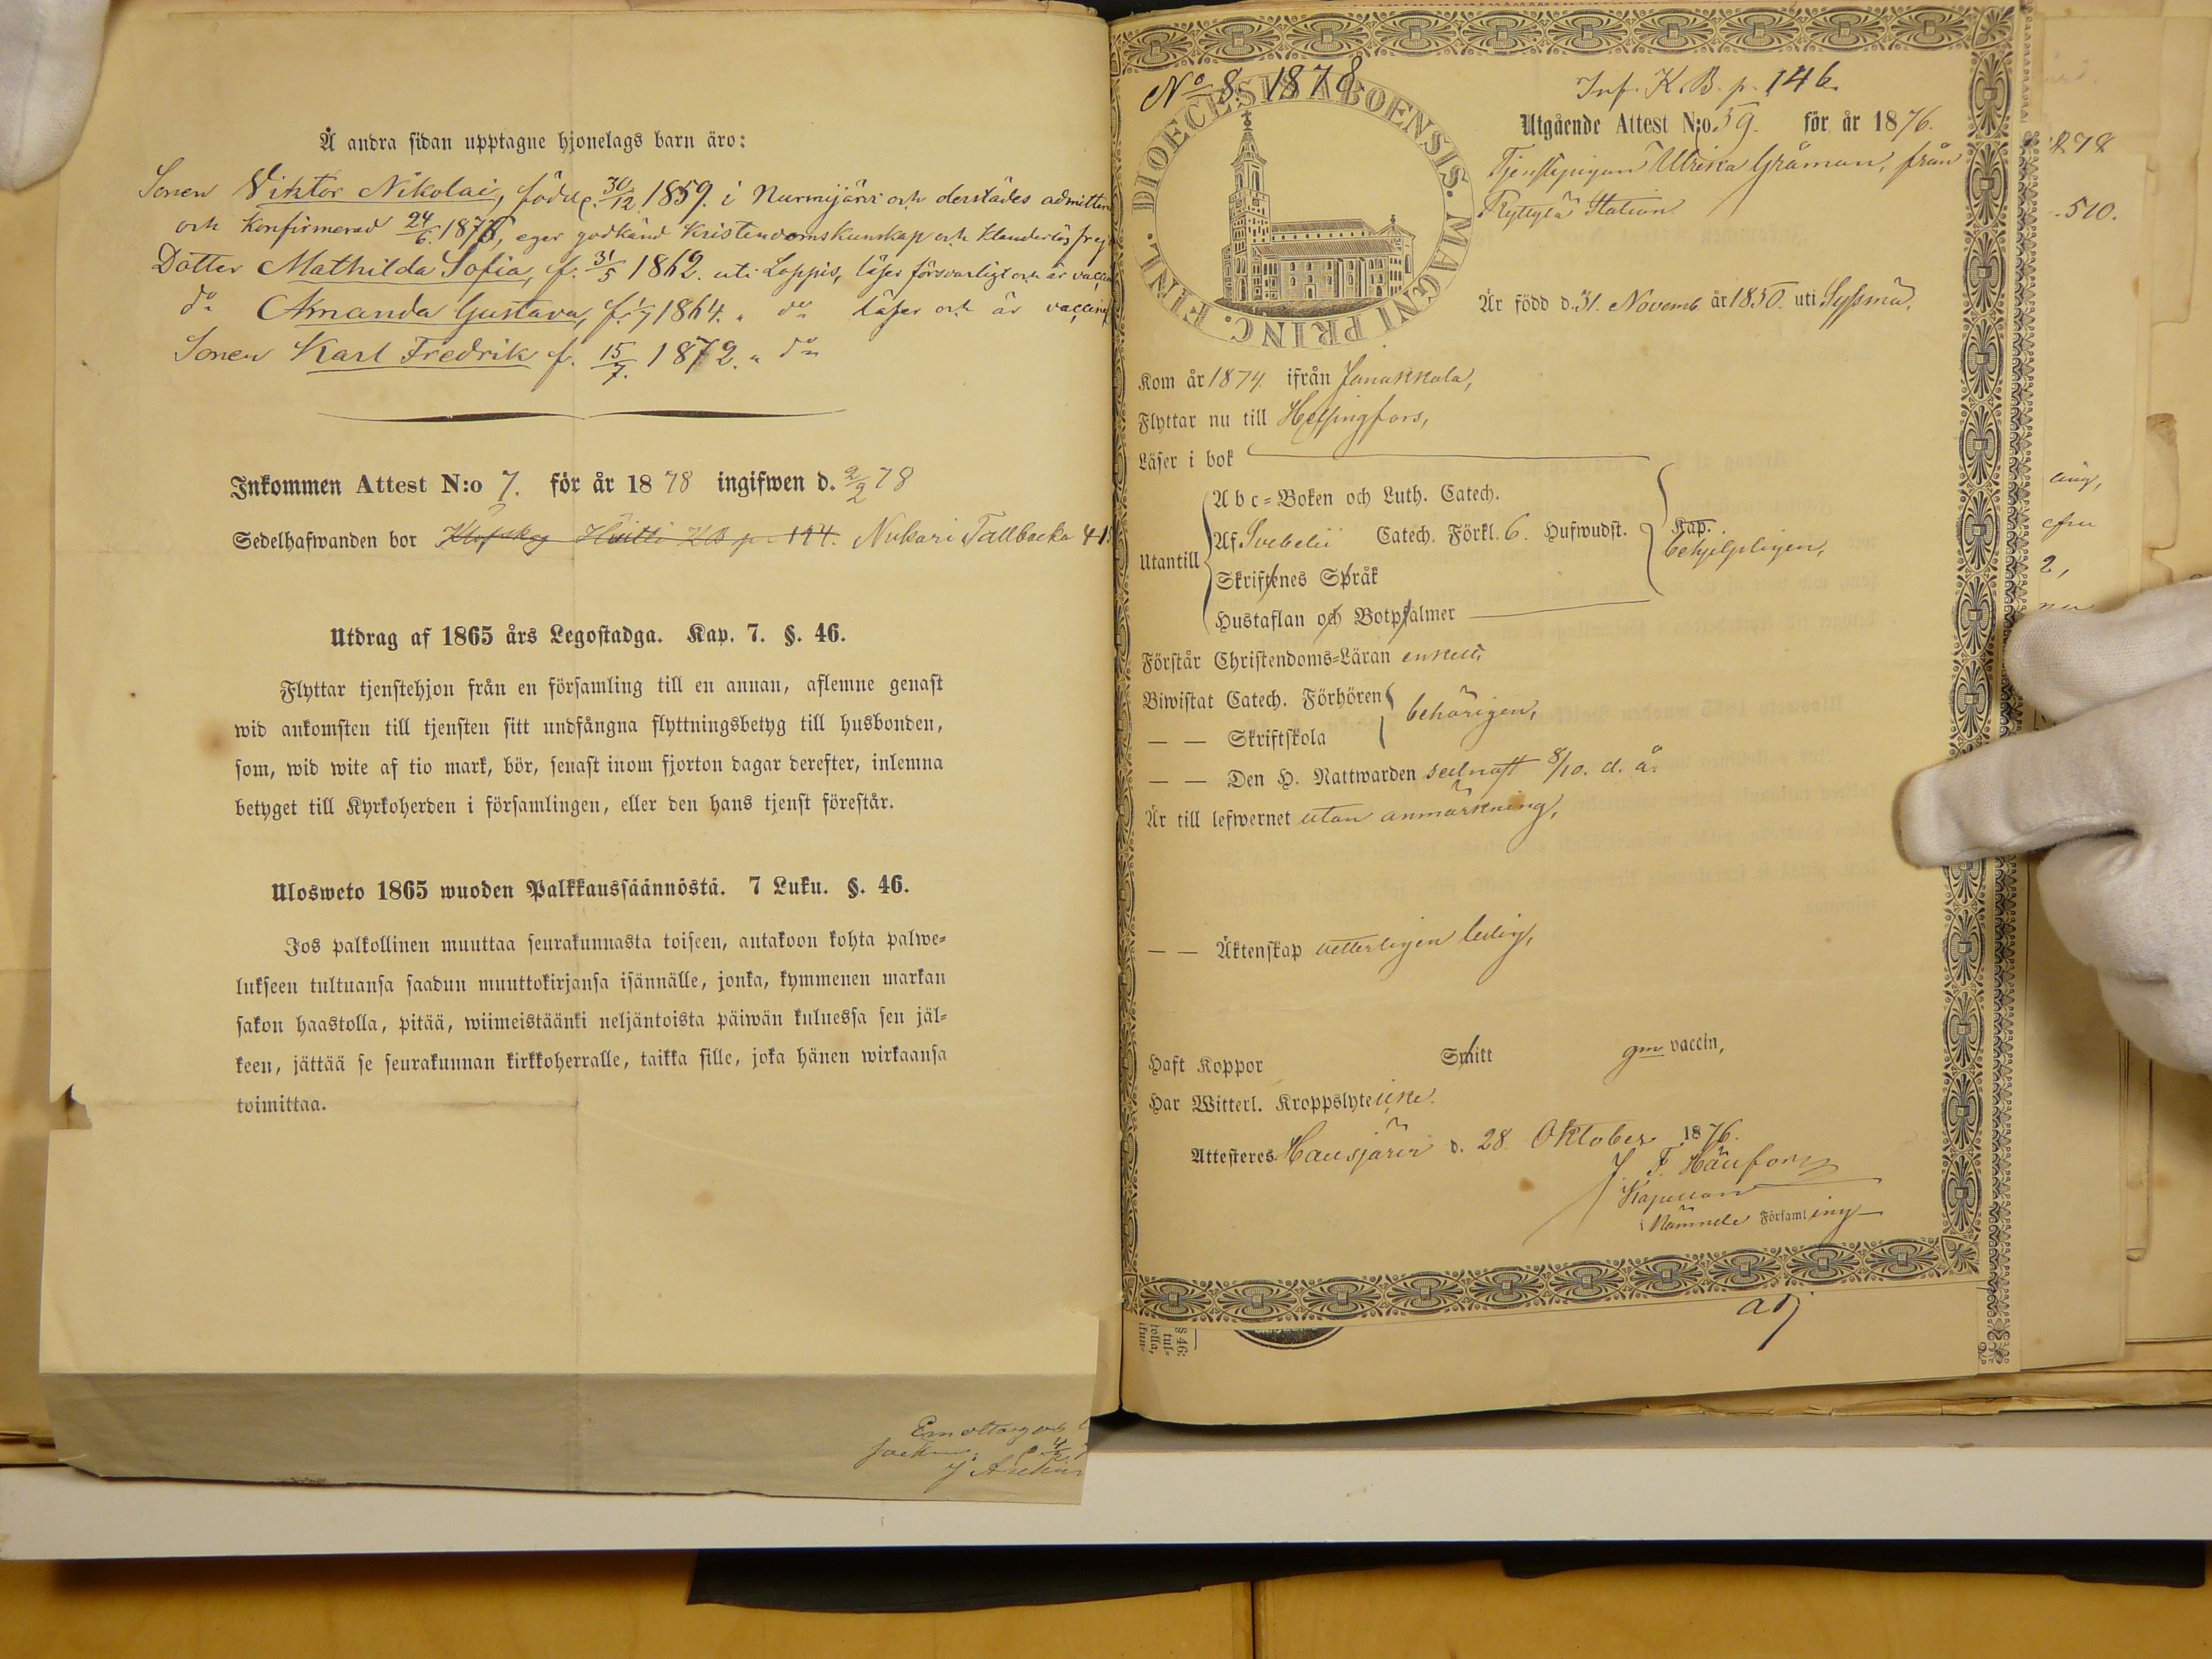 Å andra sidan upptagne hjonelags barn äro:
Sonen Viktor Nikolai, född d. 30/12 1859. i Nurmijärvi och derstädes admitter
och konfirmerad 24/6. 1876, eger godkänd kristendomskunskap och klanderlös frej
Dotter Mathilda Sofia, f. 31/5 1862. uti Loppis, läser försvarligt och är vacc
do Amanda Gustava, f. 1/7 1864. " do läser och är vaccin
Sonen Karl Fredrik f. 15/7. 1872. " do
Inkommen Attest N:o 7. för år 1878 ingifwen d. 2/2 78
Sedelhafwanden bor Klöfskog Hvitti KB p. 194. Nukari Tallbacka 41
Utdrag af 1865 års Legostadga. Kap. 7. §. 46.
Flyttar tjenstehjon från en församling till en annan, aflemne genast
wid ankomsten till tjensten sitt undfångna flyttningsbetyg till husbonden,
som, wid wite af tio mark, bör, senast inom fjorton dagar derefter, inlemna
betyget till Kyrkoherden i församlingen, eller den hans tjenst förestår.
Ulosweto 1865 wuoden Palkkaussäännöstä. 7 Luku. §. 46.
Jos palkollinen muuttaa seurakunnasta toiseen, antakoon kohta palwe-
lukseen tultuansa saadun muuttokirjansa isännälle, jonka, kymmenen markan
sakon haastolla, pitää, wiimeistäänki neljäntoista päiwän kuluessa sen jäl-
keen, jättää se seurakunnan kirkkoherralle, taikka sille, joka hänen wirkaansa
toimittaa.
Emottagen
No 8. 1878
DIOECESIS ABOENSIS. MAGNI PRINC. FINL.
Inf. K. B. p. 146.
Utgående Attest N:o 59. för år 1876.
Tjenstepigan Ulrika Gråman, från
Ryttylä Station
Är född d. 31. Novemb. år 1850. uti Syssmä.
Kom år 1874 ifrån Janakkala,
Flyttar nu till Helsingfors,
Läser i bok
Utantill
A b c-Boken och Luth. Catech.
Af Svebelii Catech. Förkl. 6. Hufwudst.
Skriftenes Språk
Hustaflan och Botpsalmer
Kap.
behjelpligen,
Förstår Christendoms-Läran enkelt,
Biwistat Catech. Förhören
behörigen,
— — Skriftskola
— — Den H. Nattwarden sednast 8/10. d. å.
Är till lefwernet utan anmärkning,
— — Äktenskap vetterligen ledig,
Haft Koppor Smitt gm vaccin,
Har Witterl. Kroppslyte icke.
Attesteres Hausjärvi d. 28. Oktober 1876.
Kapellan
Nämnde Församling
adj
878
510.
2,
§ 46:
tul-
tolla,